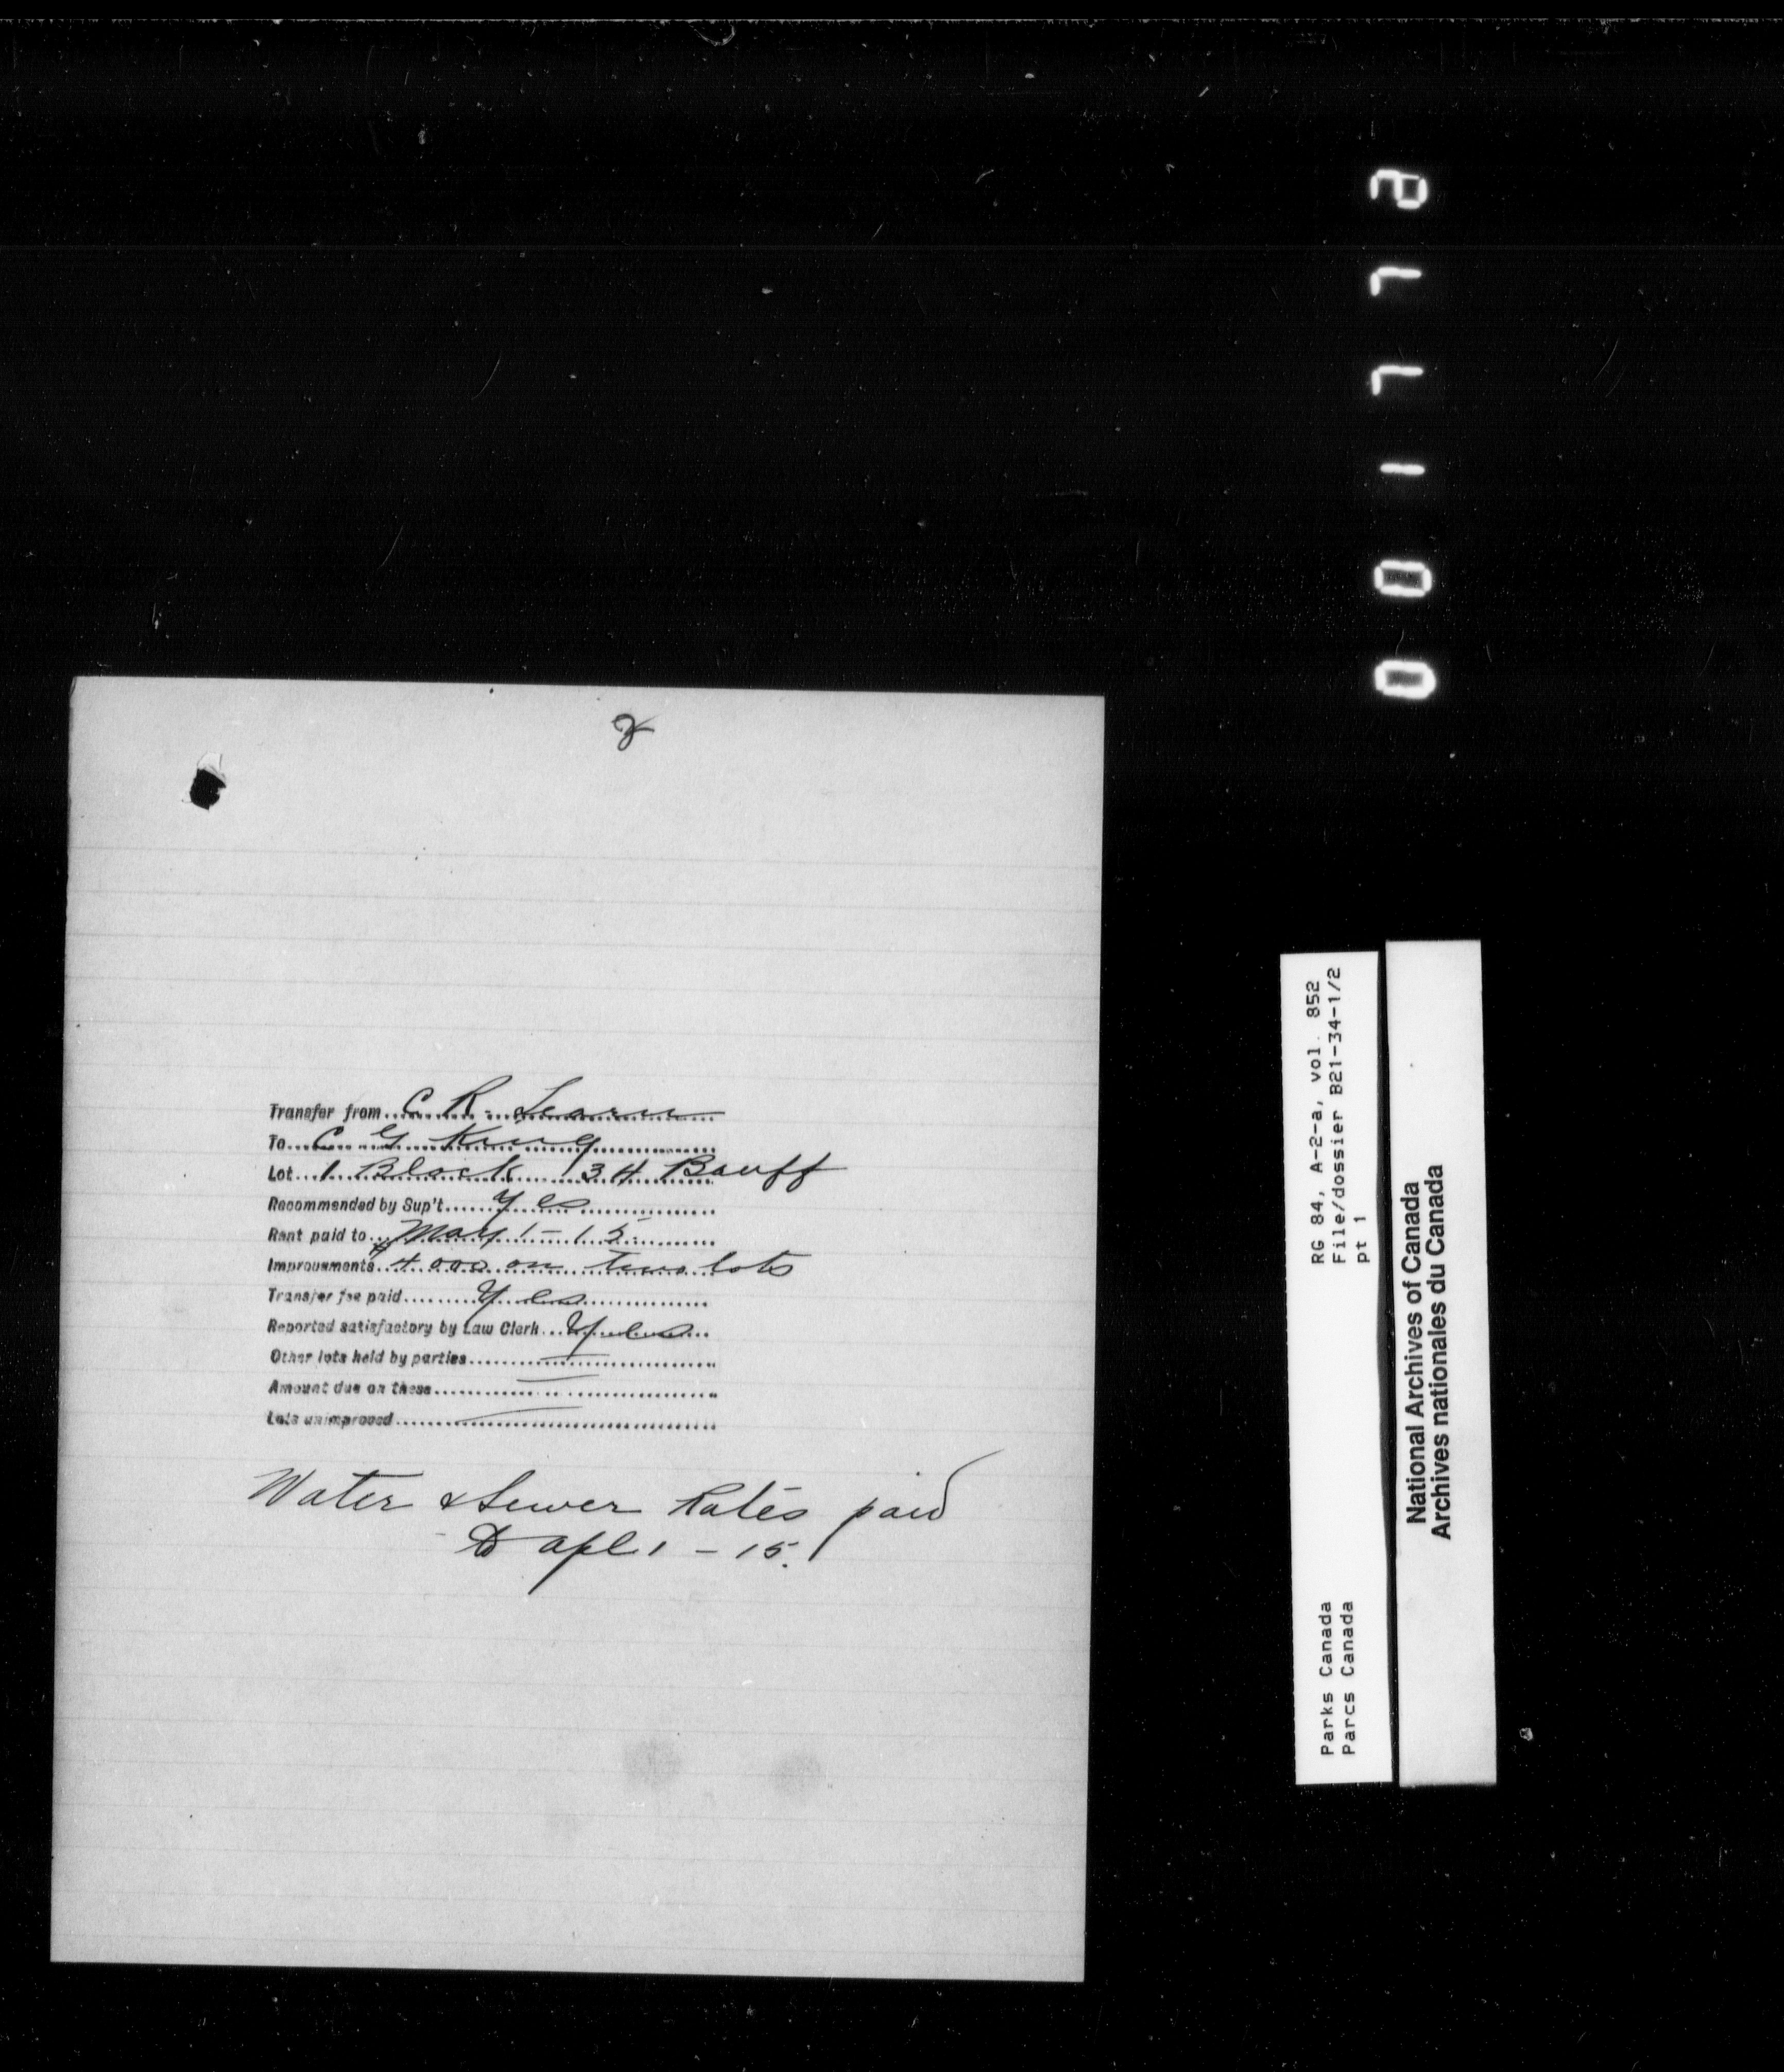 2
Transfer from C R. Learn
To C G King
Lot 1 Block 34 Banff
Recommended by Sup't yes
Rent paid to May 1 - 15.
Improvements $4000 on two lots
Transfer fee paid Yes
Reported satisfactory by Law Clerk Yes
Other lots held by parties —
Amount due on these —
Lots unimproved —
Water & Sewer Rates paid
to Apl 1 - 15.
RG 84, A-2-a, vol. 852
File/dossier B21-34-1/2
pt 1
Parks Canada
Parcs Canada
National Archives of Canada
Archives nationales du Canada